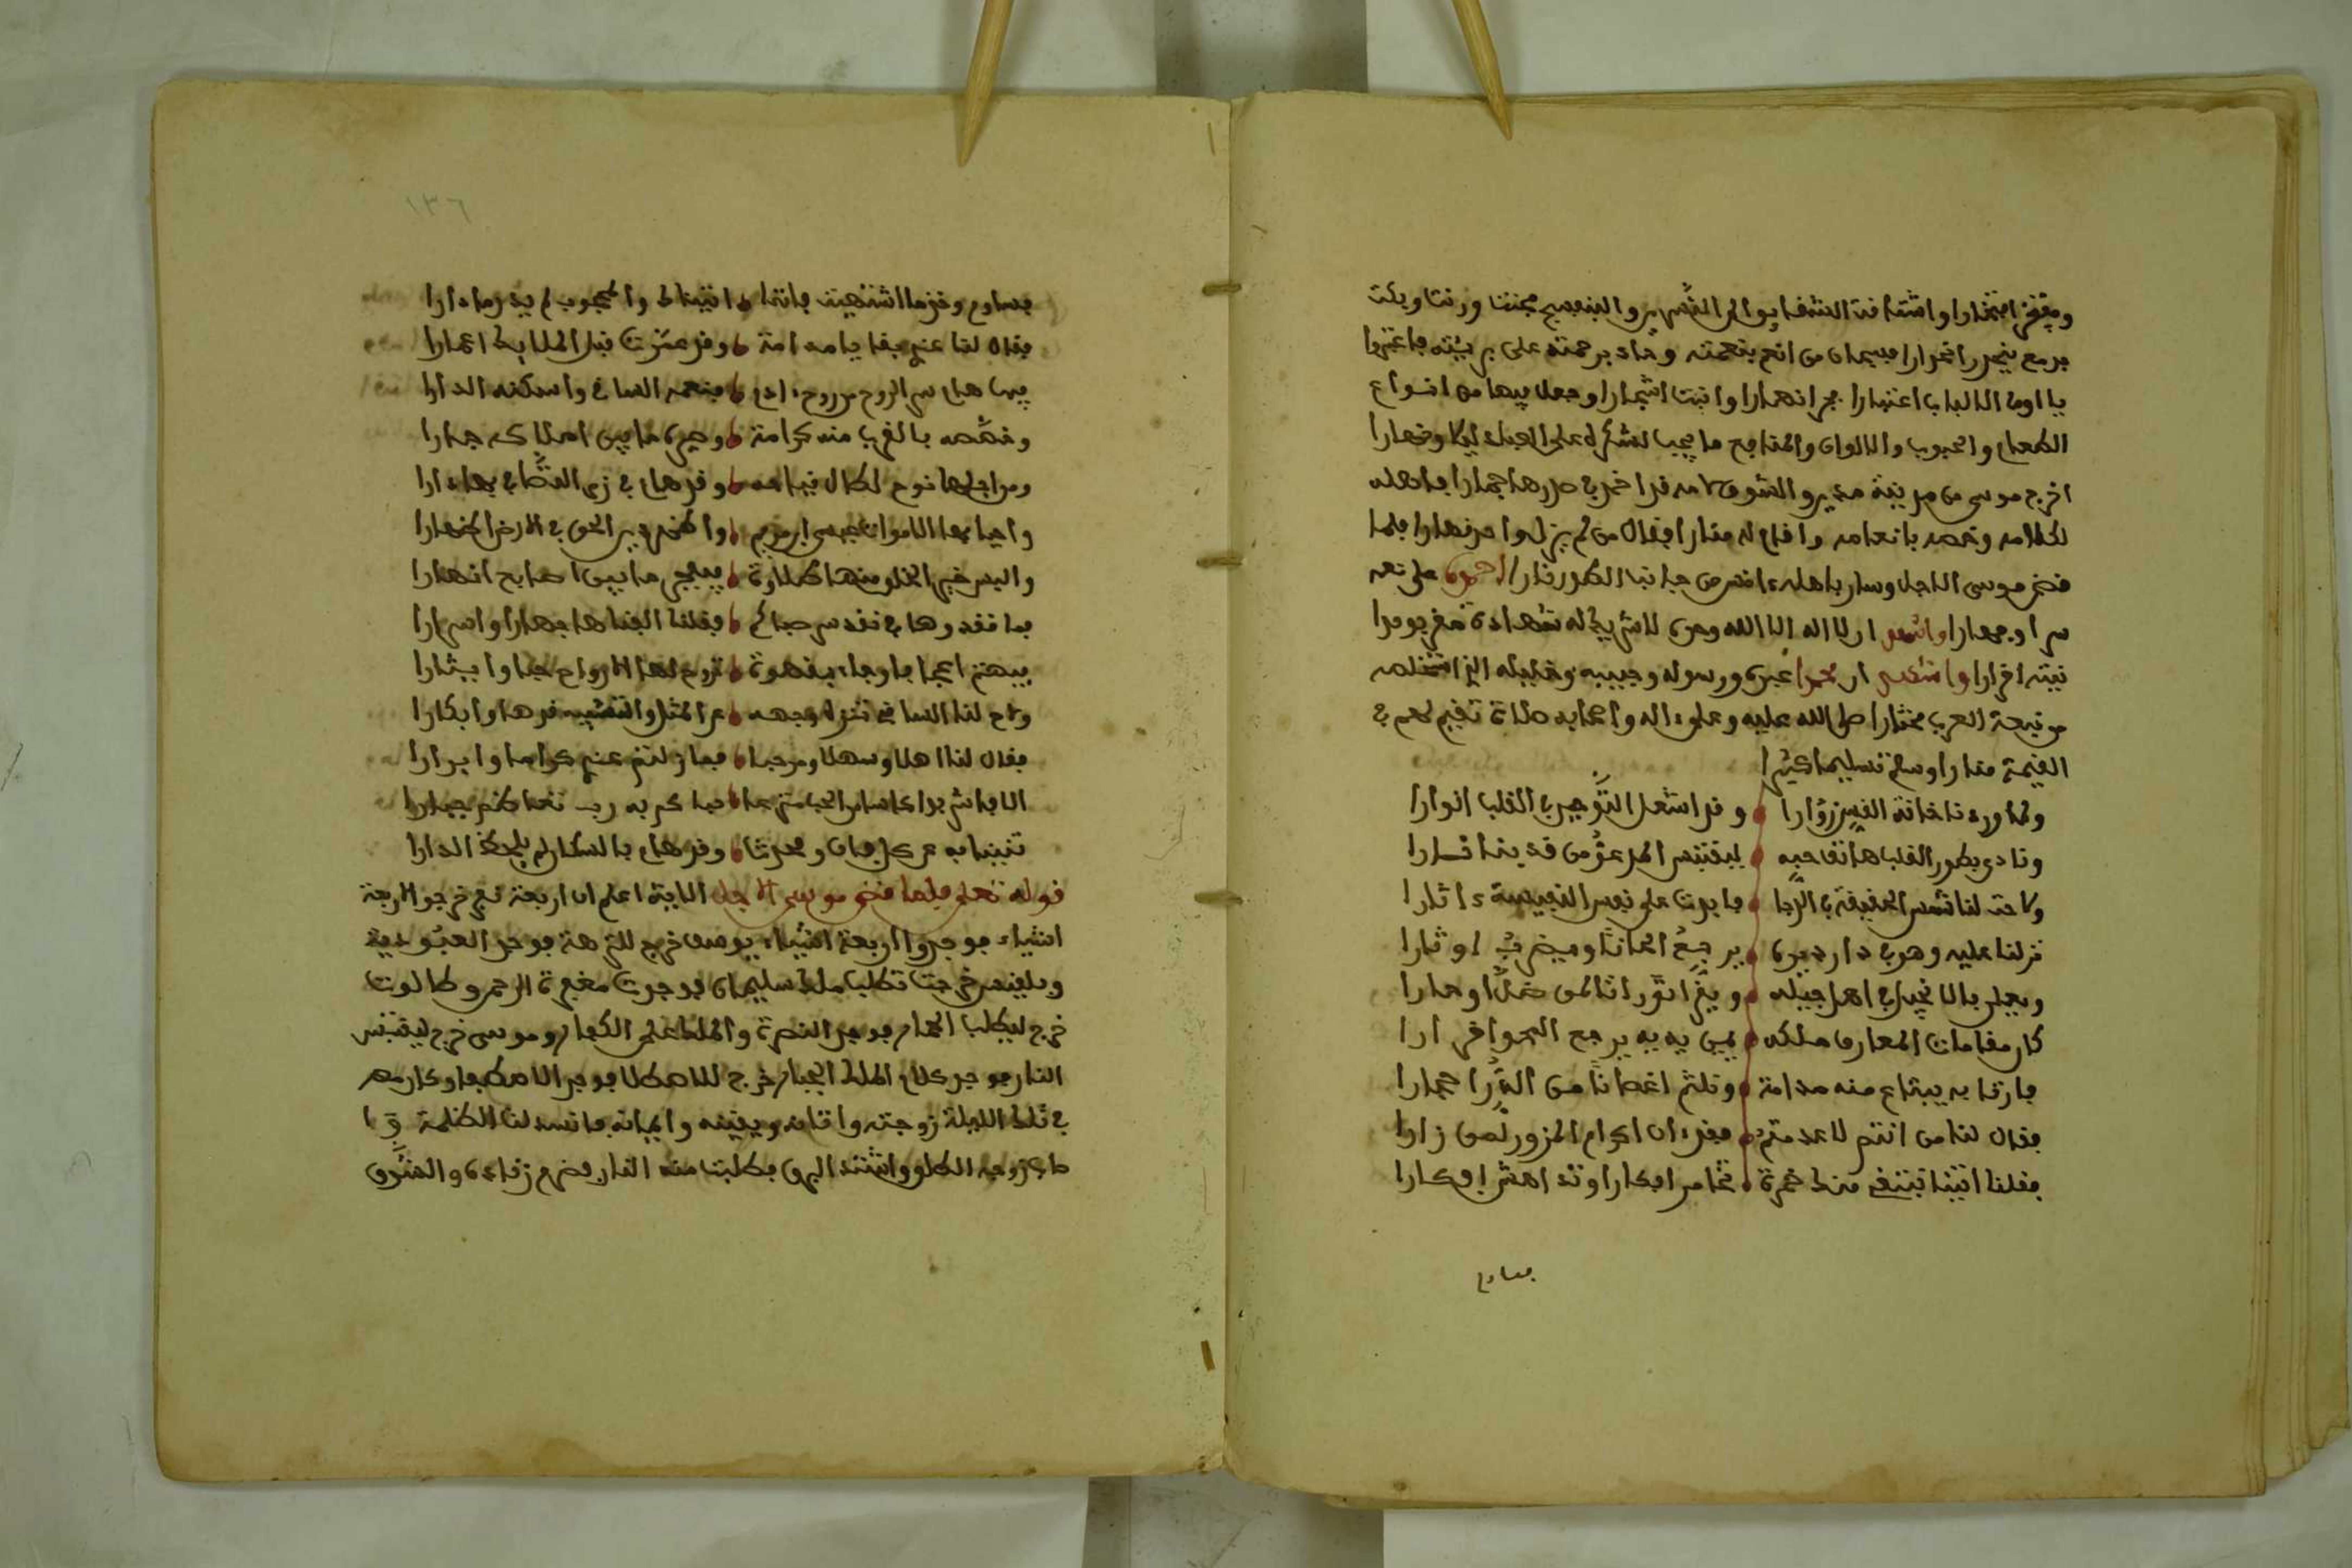 ويفتخر افتخارا واشتاقت الشقايق الى النسرين والبنفسج فحنت ورنت وبكت
بدمع ينحدر انحدارا فسبحان من انعم بنعمته وجاد برحمته على بريته فاعتبروا
يا اولى الالباب اعتبارا فجر انهارا وانبت اشجارا وجعل فيها من انواع
الطعام والحبوب والالوان والمنافع ما يجب لشكره على العباد ليلا ونهارا
اخرج موسى من مدينة مدين والشوق قد اضرم في صدره جمارا فاهله
لكلامه وخصه بانعامه واقام له منارا فقال من لم يزل واحدا قهارا فلما
قضى موسى الاجل وسار باهله ءانس من جانب الطور نارا احمده على نعمه
سرا وجهارا واشهد ان لا اله الا الله وحده لا شريك له شهادة مقر يوفى
نيته اقرارا واشهد ان محمدا عبده ورسوله وحبيبه وخليله الذي استخلصه
من نبعة العرب مختارا صلى الله عليه وعلى ءاله واصحابه صلاة تقيم لهم في
القيمة منارا وسلم تسليما كثيرا
ولما وردنا خانة القس زوارا وقد اشعل التوحيد في القلب انوارا
ونادى بطور القلب هاتف حبه ليقتبس المدعو من قدسنا نارا
ولاحت لنا شمس الحقيقة في الدجا فابدت على نفس النفيسة ءاثارا
نزلنا عليه وهو في دار ديره يرجع الحانا ويضرب اوتارا
ويعلن بالانجيل في اهل جيله ويقرا توراة لمن ضل او حارا
كان مقامات المعارف ملكه فمن يه به يرجع الى نحو اقرارا
فازنا به نبتاع منه مدامة ونلثم اغصانا من الدر احمارا
فقال لنا من انتم لا عدمتم فقد ءان اكرام المزور لمن زارا
فقلنا اتينا نبتغي منك خمرة تخامر افكارا وتدهش افكارا
فساوم
١٣٦
فساوم وخذ ما اشتهيت فاننا اتيناك والمحبوب لم يدر ما دارا
فقال لنا عندي بقايا مدامة وقد عتقت قبل الملايك اعمارا
فيها هام سر الروح من روح ءادم فنعمه الساقي واسكنه الدارا
وخصصه بالقرب منه كرامة وصير ما بين املاكه جارا
ومن اجلها نوح اطال نياحه وقد هام في زي التصابي بها دارا
واحيا بها الاموات عيسى ابن مريم واظهر دين الحق في الارض اظهارا
واليس خير الخلق منها طلاوة ففجر ما بين اصابع انهارا
بها نقدوها في تقدس صانع فقلنا الفناها جهارا واسرارا
فيهتز اعجابا وجاء بقهوة تروح لها الارواح حبا وايثارا
ولاح لنا الساقي تنزه وجهه عن المثل والتشبيه قدها وابكارا
فقال لنا اهلا وسهلا ومرحبا فما زلتم عندي كراما وابرارا
الا فاشربوا كاسات الحب مترعا حباكم به رب تعاظم جبارا
تغيبنا به عن كل فان ومحدث وقد هام بالسكارى بلحظ الدارا
قوله تعلى فلما قضى موسى الاجل الاية اعلم ان اربعة نفر خرجوا لاربعة
اشياء فوجدوا اربعة اشياء يوسف خرج للنزهة فوجد العبودية
وبلقيس خرجت تطلب ملك سليمان فوجدت مغفرة الرحمن وطالوت
خرج ليطلب الحمار فوجد النصرة والملك على الكفار وموسى خرج ليقتبس
النار فوجد كلام الملك الجبار خرج للاصطلا فوجد الاصطفا وكان معه
في تلك الليلة زوجته واتانه ويقينه وايمانه فانسدلت الظلمة وجا
ها زوجه الطلق واشتد البرق فطلبت منه النار فضرب زناده والمنشرق